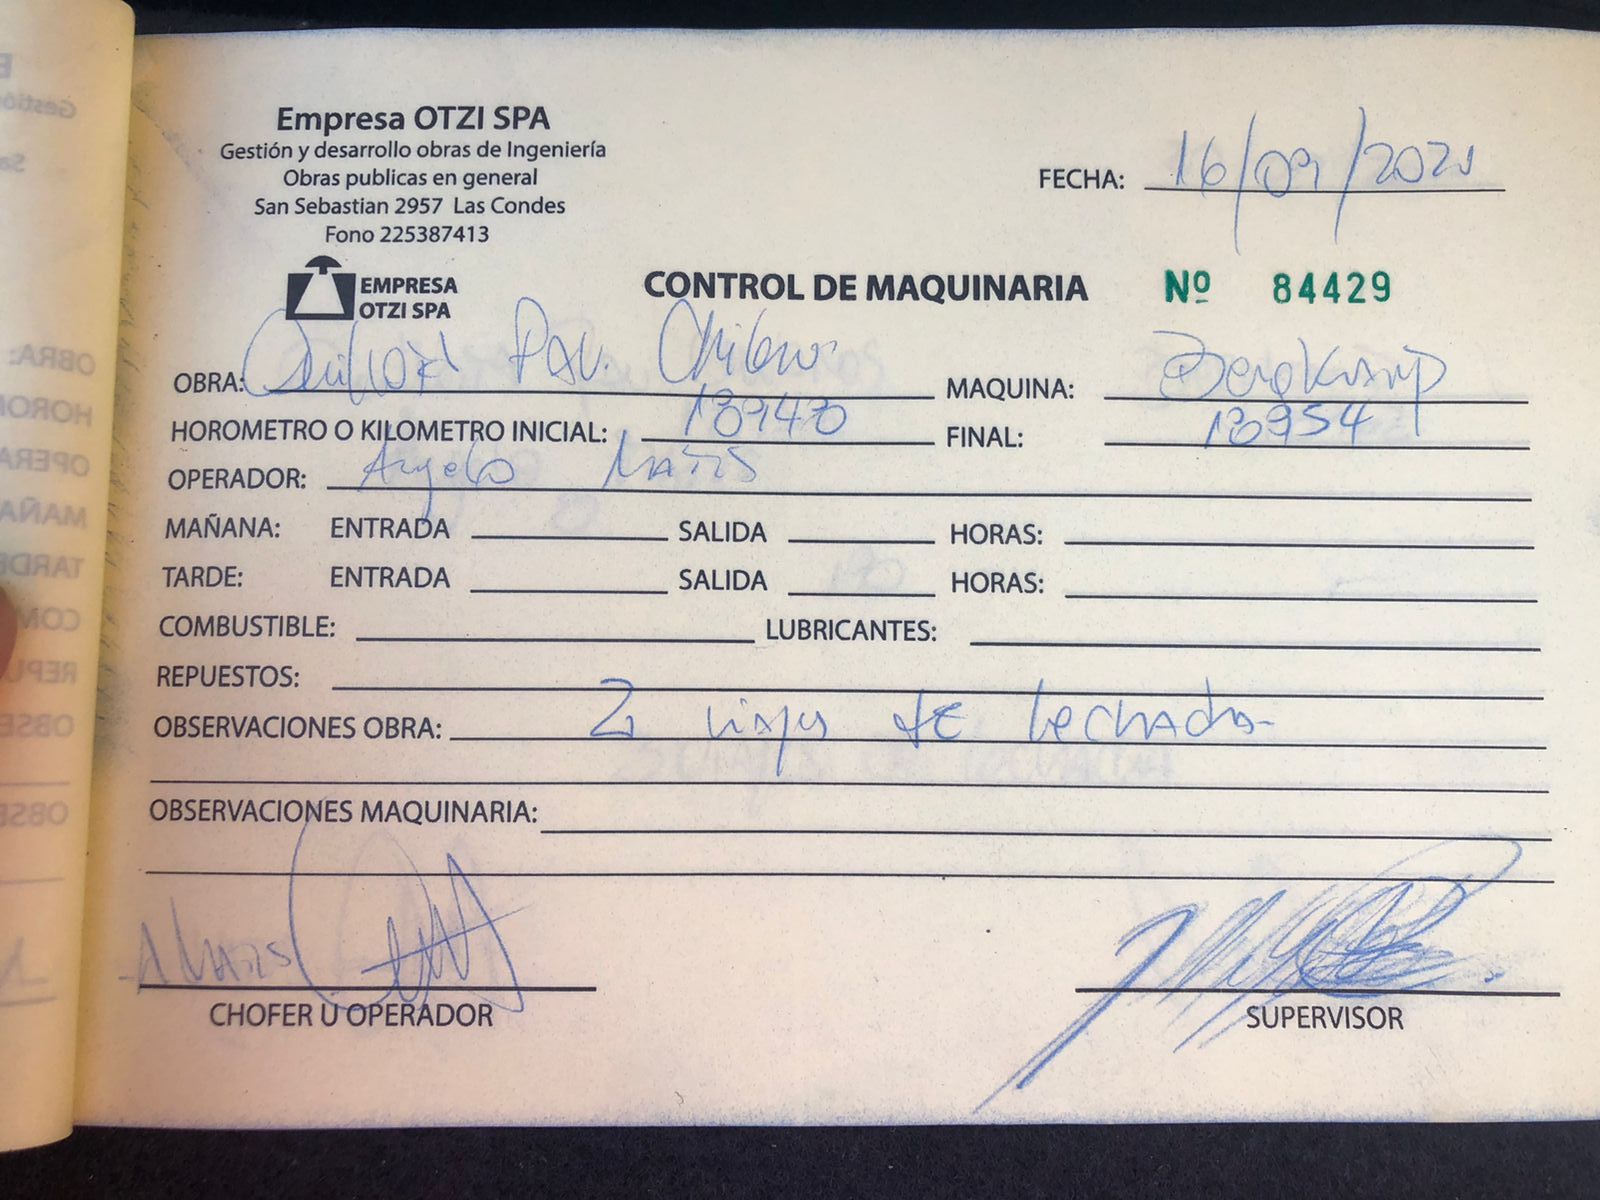 Empresa OTZI SPA
Gestión y desarrollo obras de Ingeniería
Obras publicas en general
San Sebastian 2957 Las Condes
Fono 225387413
FECHA: 16/09/2021
EMPRESA
OTZI SPA
CONTROL DE MAQUINARIA Nº 84429
OBRA: Pav. MAQUINA:
HOROMETRO O KILOMETRO INICIAL: FINAL: 13954
OPERADOR: Angelo
MAÑANA: ENTRADA SALIDA HORAS:
TARDE: ENTRADA SALIDA HORAS:
COMBUSTIBLE: LUBRICANTES:
REPUESTOS:
OBSERVACIONES OBRA: 2 viajes de lechada
OBSERVACIONES MAQUINARIA:
CHOFER U OPERADOR SUPERVISOR